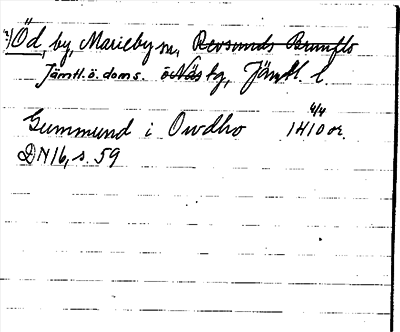 Öd, by, Marieby sn, Revsunds Brunflo
Jämtl. ö. doms. o Näs tg, Jämtl. l.
4/4
Gummund i Owdho 1410 or.
DN 16, s. 59